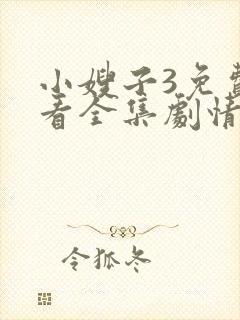 小嫂子3免費
看全集劇情
令狐冬